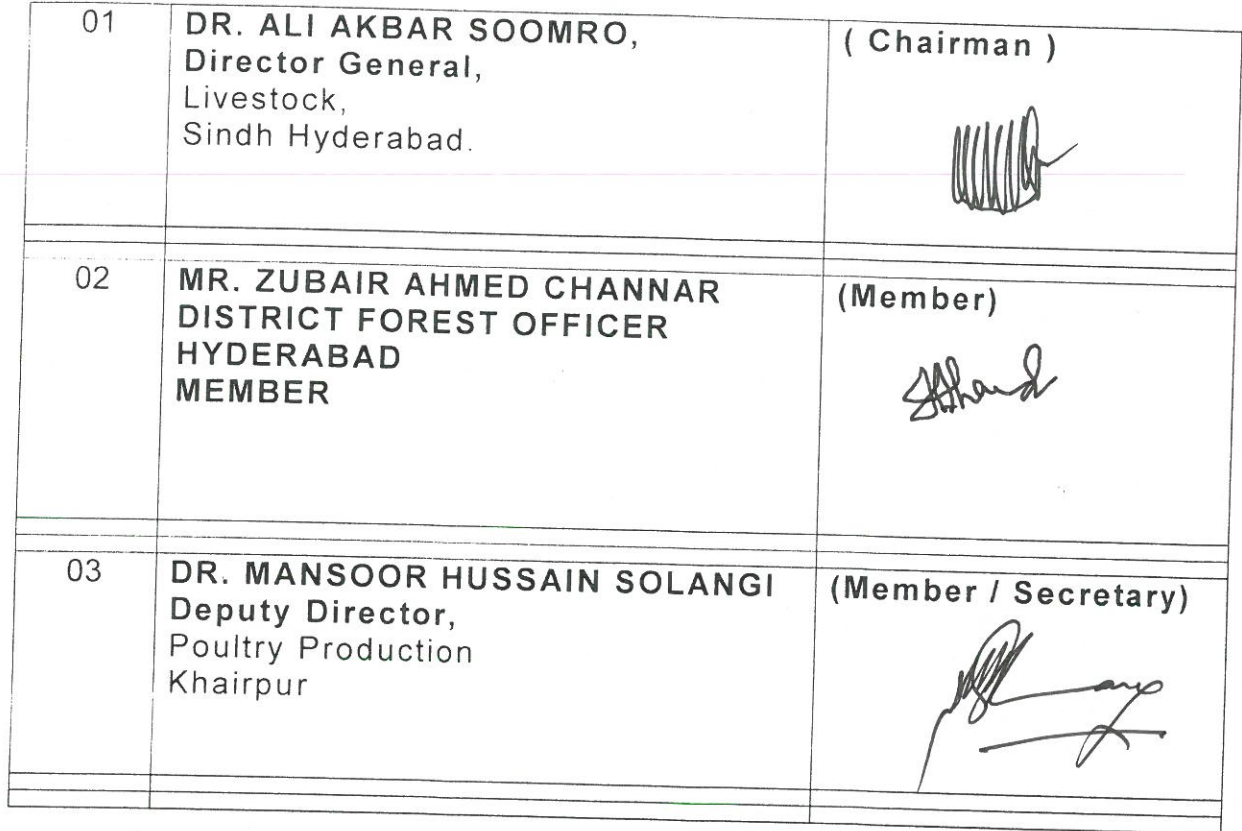 01
DR. ALI AKBAR SOOMRO,
Director General,
Livestock,
Sindh Hyderabad.
( Chairman )
02
MR. ZUBAIR AHMED CHANNAR
DISTRICT FOREST OFFICER
HYDERABAD
MEMBER
(Member)
03
DR. MANSOOR HUSSAIN SOLANGI
Deputy Director,
Poultry Production
Khairpur
(Member / Secretary)